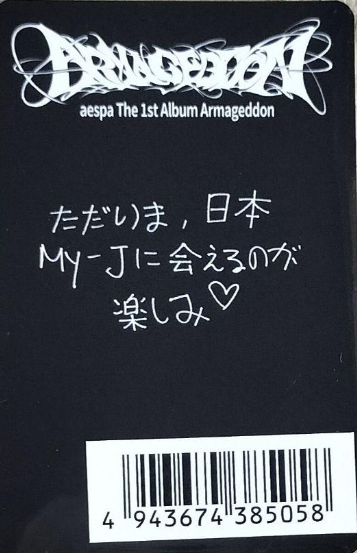 ARMAGEDDON
aespa The 1st Album Armageddon
ただいま, 日本
My-Jに会えるのが
楽しみ♡
4 943674 385058